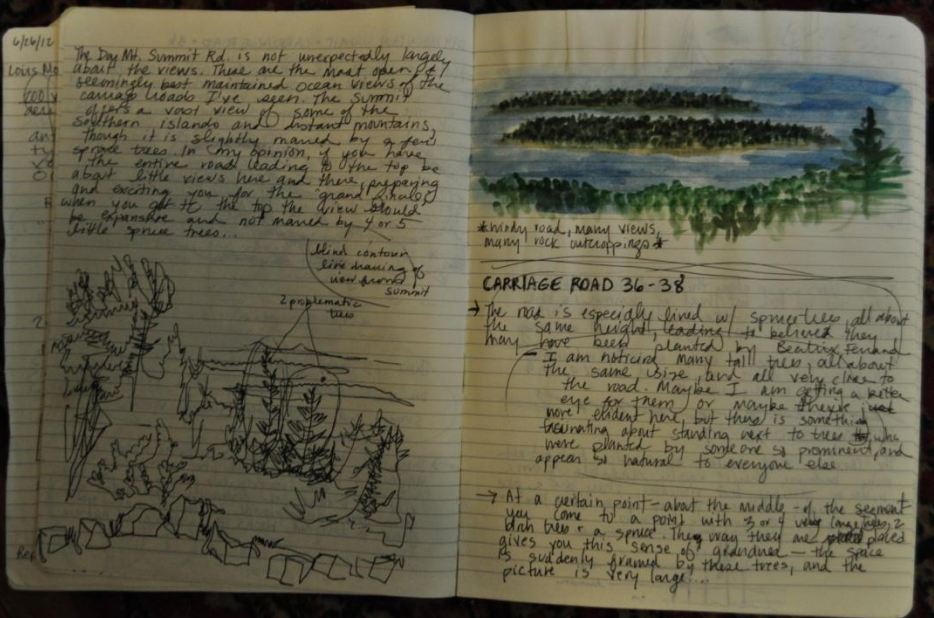 6/26/12
The Day Mt. Summit Rd. is not unexpectedly largely
about the views. These are the most open &
seemingly best maintained ocean views of the
carriage roads I've seen. The Summit
offers a vast view of some of the
Southern islands and distant mountains,
though it is slightly marred by a few
spruce trees. In my opinion, if you have
the entire road leading to the top be
about little views here and there, preparing
and exciting you for the "grand finale,"
when you get to the top the view should
be expansive and not marred by 4 or 5
little spruce trees...
blind contour
line drawing of
view from
summit
2 problematic
trees
*windy road, many views,
many rock outcroppings*
CARRIAGE ROAD 36-38
→ The road is especially lined w/ spruce trees, all about
the same height, leading to believed they
may have been planted by Beatrix Ferrand
- I am noticing many tall trees, all about
the same size, and all very close to
the road. Maybe I am getting a better
eye for them or maybe they're just
more evident here, but there is something
fascinating about standing next to trees who
were planted by someone so prominent, and
appear so natural to everyone else.
→ At a certain point - about the middle - of the segment
you come to a point with 3 or 4 very large trees, 2
birch trees + a spruce. The way they are placed
gives you this sense of grandeur — the space
is suddenly framed by these trees, and the
picture is very large.